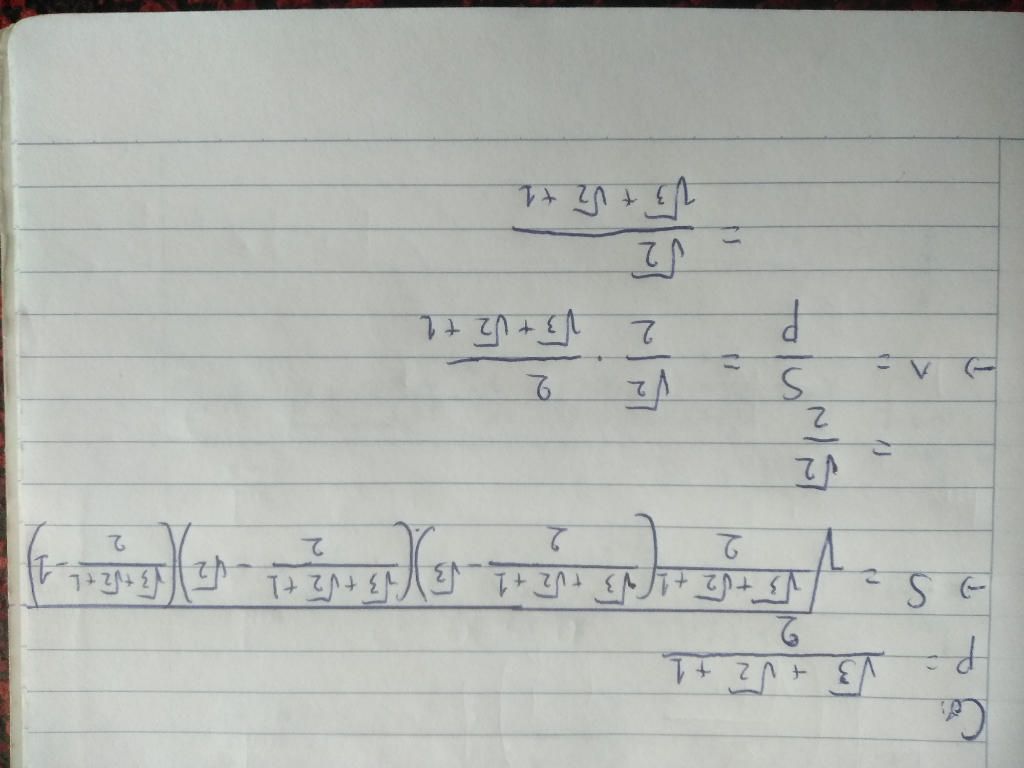 Có:
p = (√3 + √2 + 1)/2
→ S = √((√3 + √2 + 1)/2 ((√3 + √2 + 1)/2 - √3)((√3 + √2 + 1)/2 - √2)((√3 + √2 + 1)/2 - 1))
= √2/2
→ r = S/p = √2/2 · 2/(√3 + √2 + 1)
= √2/(√3 + √2 + 1)